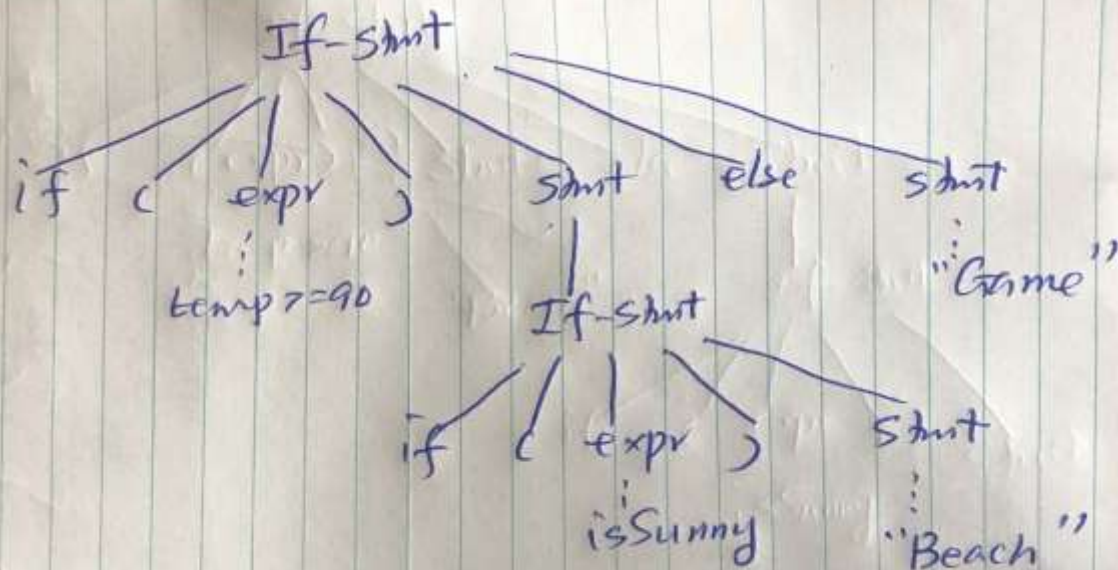 If-Stmt
if ( expr ) Stmt else stmt
temp >= 90
"Game"
If-stmt
if ( expr ) Stmt
isSunny
"Beach"